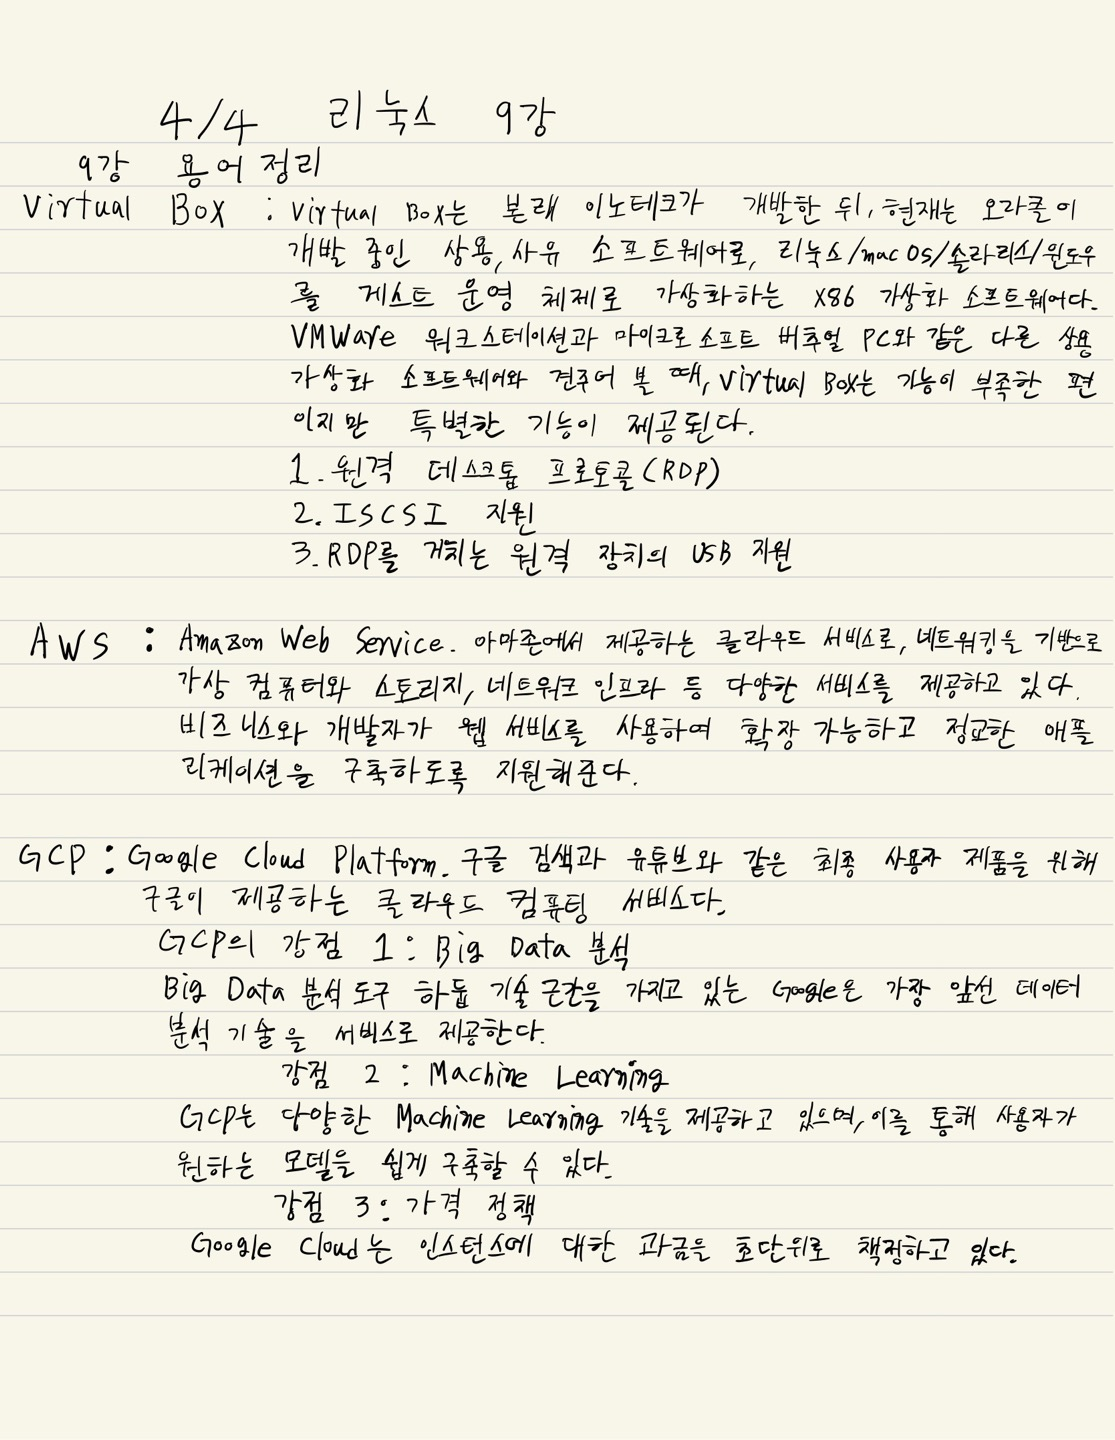 4/4 리눅스 9강
9강 용어정리
Virtual Box : Virtual Box는 본래 이노테크가 개발한 뒤, 현재는 오라클이
개발 중인 상용, 사유 소프트웨어로, 리눅스/mac OS/솔라리스/윈도우
를 게스트 운영 체제로 가상화하는 X86 가상화 소프트웨어다.
VMWare 워크스테이션과 마이크로소프트 버추얼 PC와 같은 다른 상용
가상화 소프트웨어와 견주어 볼 때, Virtual Box는 기능이 부족한 편
이지만 특별한 기능이 제공된다.
1. 원격 데스크톱 프로토콜(RDP)
2. ISCSI 지원
3. RDP를 거치는 원격 장치의 USB 지원
AWS : Amazon Web Service. 아마존에서 제공하는 클라우드 서비스로, 네트워킹을 기반으로
가상 컴퓨터와 스토리지, 네트워크 인프라 등 다양한 서비스를 제공하고 있다.
비즈니스와 개발자가 웹 서비스를 사용하여 확장 가능하고 정교한 애플
리케이션을 구축하도록 지원해준다.
GCP : Google Cloud Platform. 구글 검색과 유튜브와 같은 최종 사용자 제품을 위해
구글이 제공하는 클라우드 컴퓨팅 서비스다.
GCP의 강점 1 : Big Data 분석
Big Data 분석 도구 하둡 기술 근간을 가지고 있는 Google은 가장 앞선 데이터
분석 기술을 서비스로 제공한다.
강점 2 : Machine Learning
GCP는 다양한 Machine Learning 기술을 제공하고 있으며, 이를 통해 사용자가
원하는 모델을 쉽게 구축할 수 있다.
강점 3 : 가격 정책
Google Cloud는 인스턴스에 대한 과금을 초단위로 책정하고 있다.